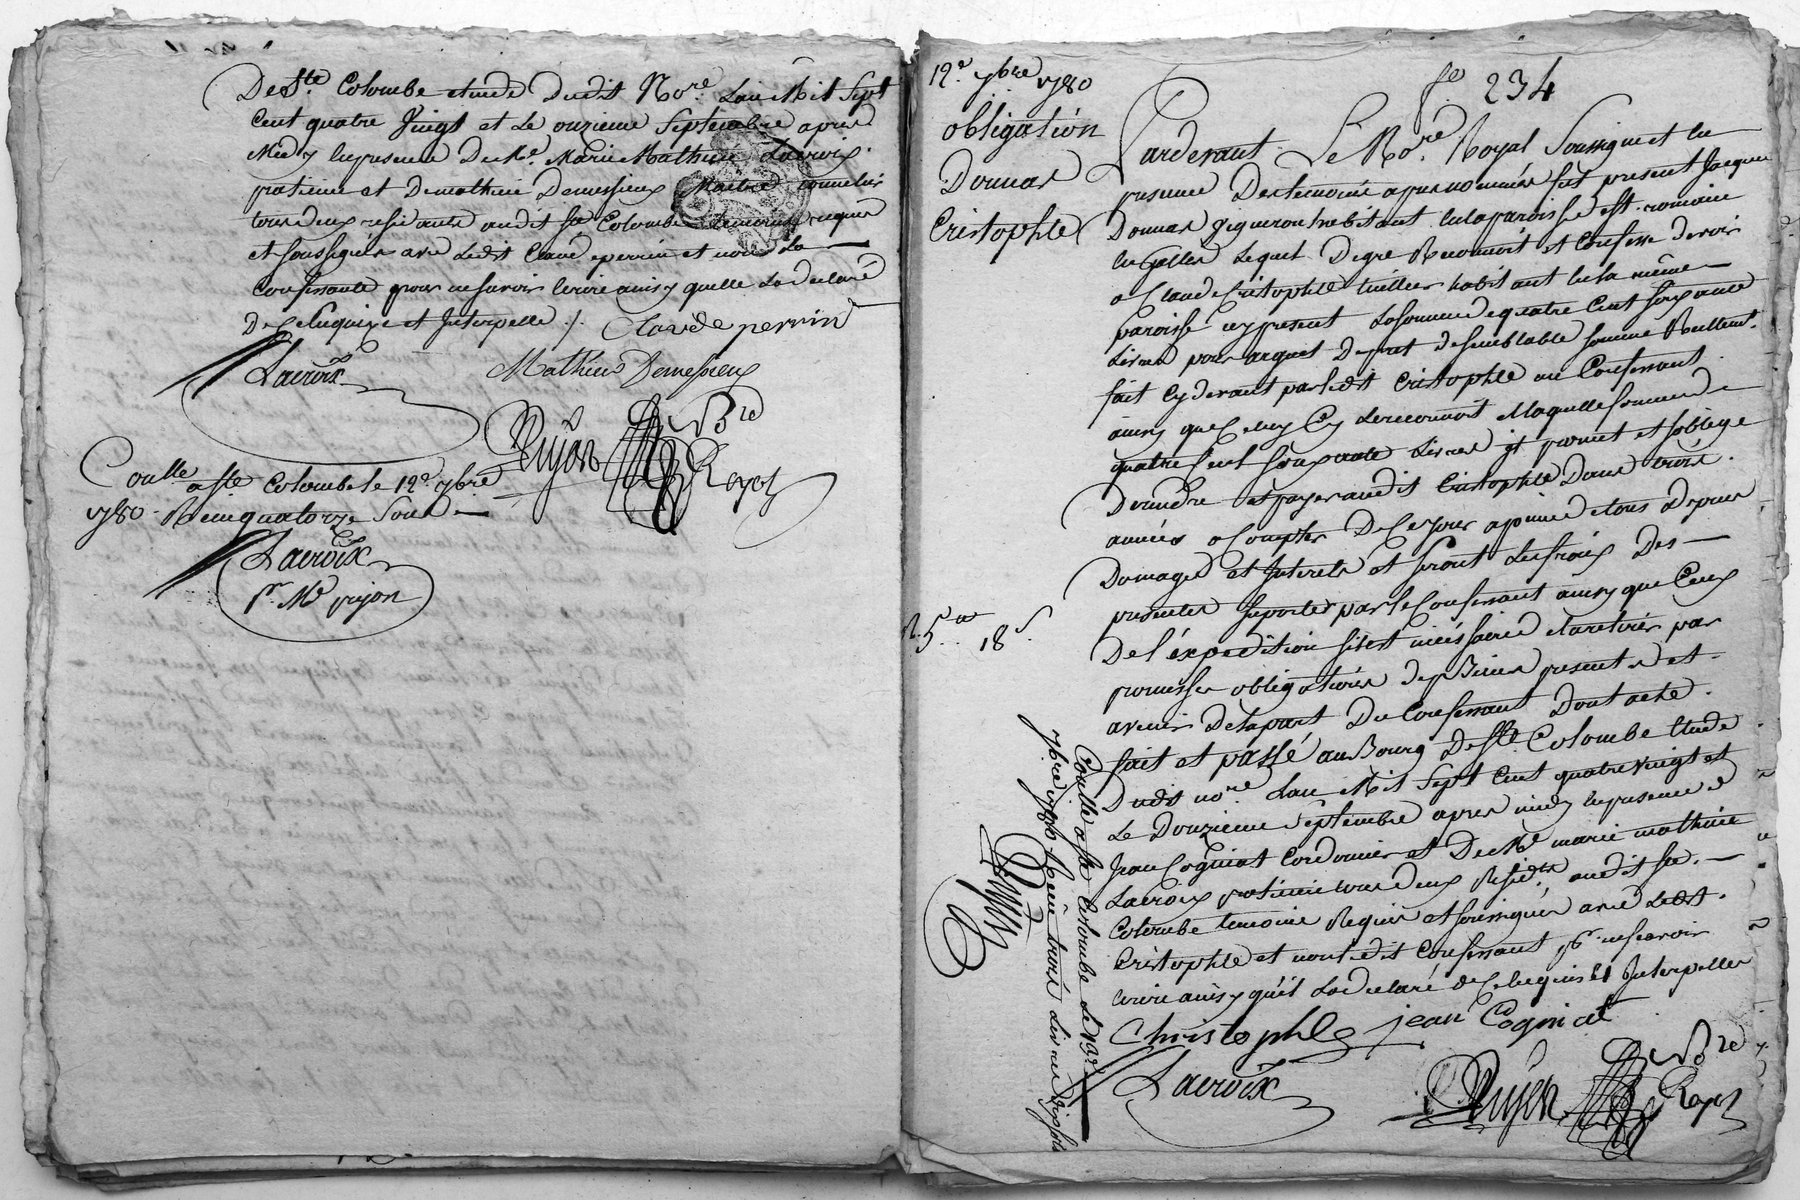 De Ste Colombe etude Dudit Nore. Lan Mil Sept
Cent quatre Vingt et Le onzieme Septembre apres
Midy En presence De Me. Marie Mathieu Lacroix
praticien et De mathieu Demessieux Maitre
tous deux residants audit Ste Colombe temoins requis
et soussignes avec Ledit Claude perrin et non La
Confessante pour ne savoir Ecrire ainsy quelle La declaré
De Ce Enquize et Interpelle ./. Claude perrin
Lacroix Mathieu Demessieux
Pujon Nre Royal
Coullé a Ste Colombe le 12e 7bre
1780 - Reçu quatorze Sous
Lacroix
pr. Me pujon
12e 7bre 1780
obligation
Donnas
Cristophle
fo 234
Pardevant Le Nore. Royal Soussigné et En
presence Des temoins apres nommés fut present Jacques
Donnas vigneron habitant En la paroisse St. romain
En Galles Lequel De gré Reconnoit et Confesse Devoir
a Claude Cristophle tuillier habitant En la même
paroisse icy present La somme de quatre Cent soixante
Livres pour argent De pret de semblable somme Reellemt.
fait Cy devant par ledit Cristophle au Confessant
ainsy que Celuy Cy Le reconnoit Et laquelle somme de
quatre Cent soixante Livres il promet et s'oblige
De rendre et payer audit Cristophle Dans trois
années a Compter De Ce jour a peine de tous depens
Domages et Interets et seront Les frais Des
presentes suportés par le Confessant ainsy que Ceux
De l'éxpedition sil est nécéssaire Et a retirer par
promesses obligations de ses Biens presents et
avenir De la part Du Confessant Dont acte
fait et passé au Bourg De Ste. Colombe Etude
Dudit nore. Lan Mil Sept Cent quatre vingt et
Le Douzieme Septembre apres midy En presence de
Jean Cogniat Cordonnier et De Me marie mathieu
Lacroix praticien tous deux Residts. audit Ste.
Colombe temoins Requis et soussignés avec Ledt.
Cristophle et non Ledit Confessant pr. ne savoir
Ecrire ainsy qu'il La declaré de Ce Enquis Et Interpellé
Christophle jean Cogniat
Lacroix Pujon Nre Royal
R. 5 tt 18 s.
Coullé a Ste Colombe Le 12e
7bre 1780 Reçu trois Livres dix sols
Pujon